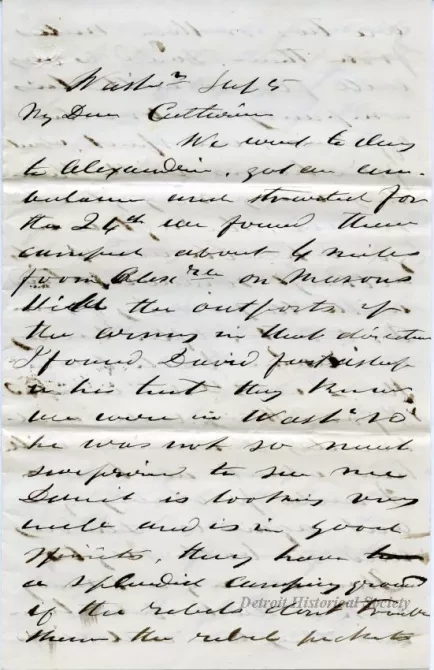 Washn Sep 5
My Dear Catherine
We went to day
to Alexandria, got an am-
bulance and started for
the 24th we found them
camped about 4 miles
from Alexria on Masons
Hill the outposts of
the army in that direction
I found David fast asleep
in his tent they knew
we were in Washn so
he was not so much
surprised to see me
David is looking very
well and is in good
spirits, they have
a splendid camping ground
if the rebels dont trouble
them the rebel pickets
Detroit Historical Society